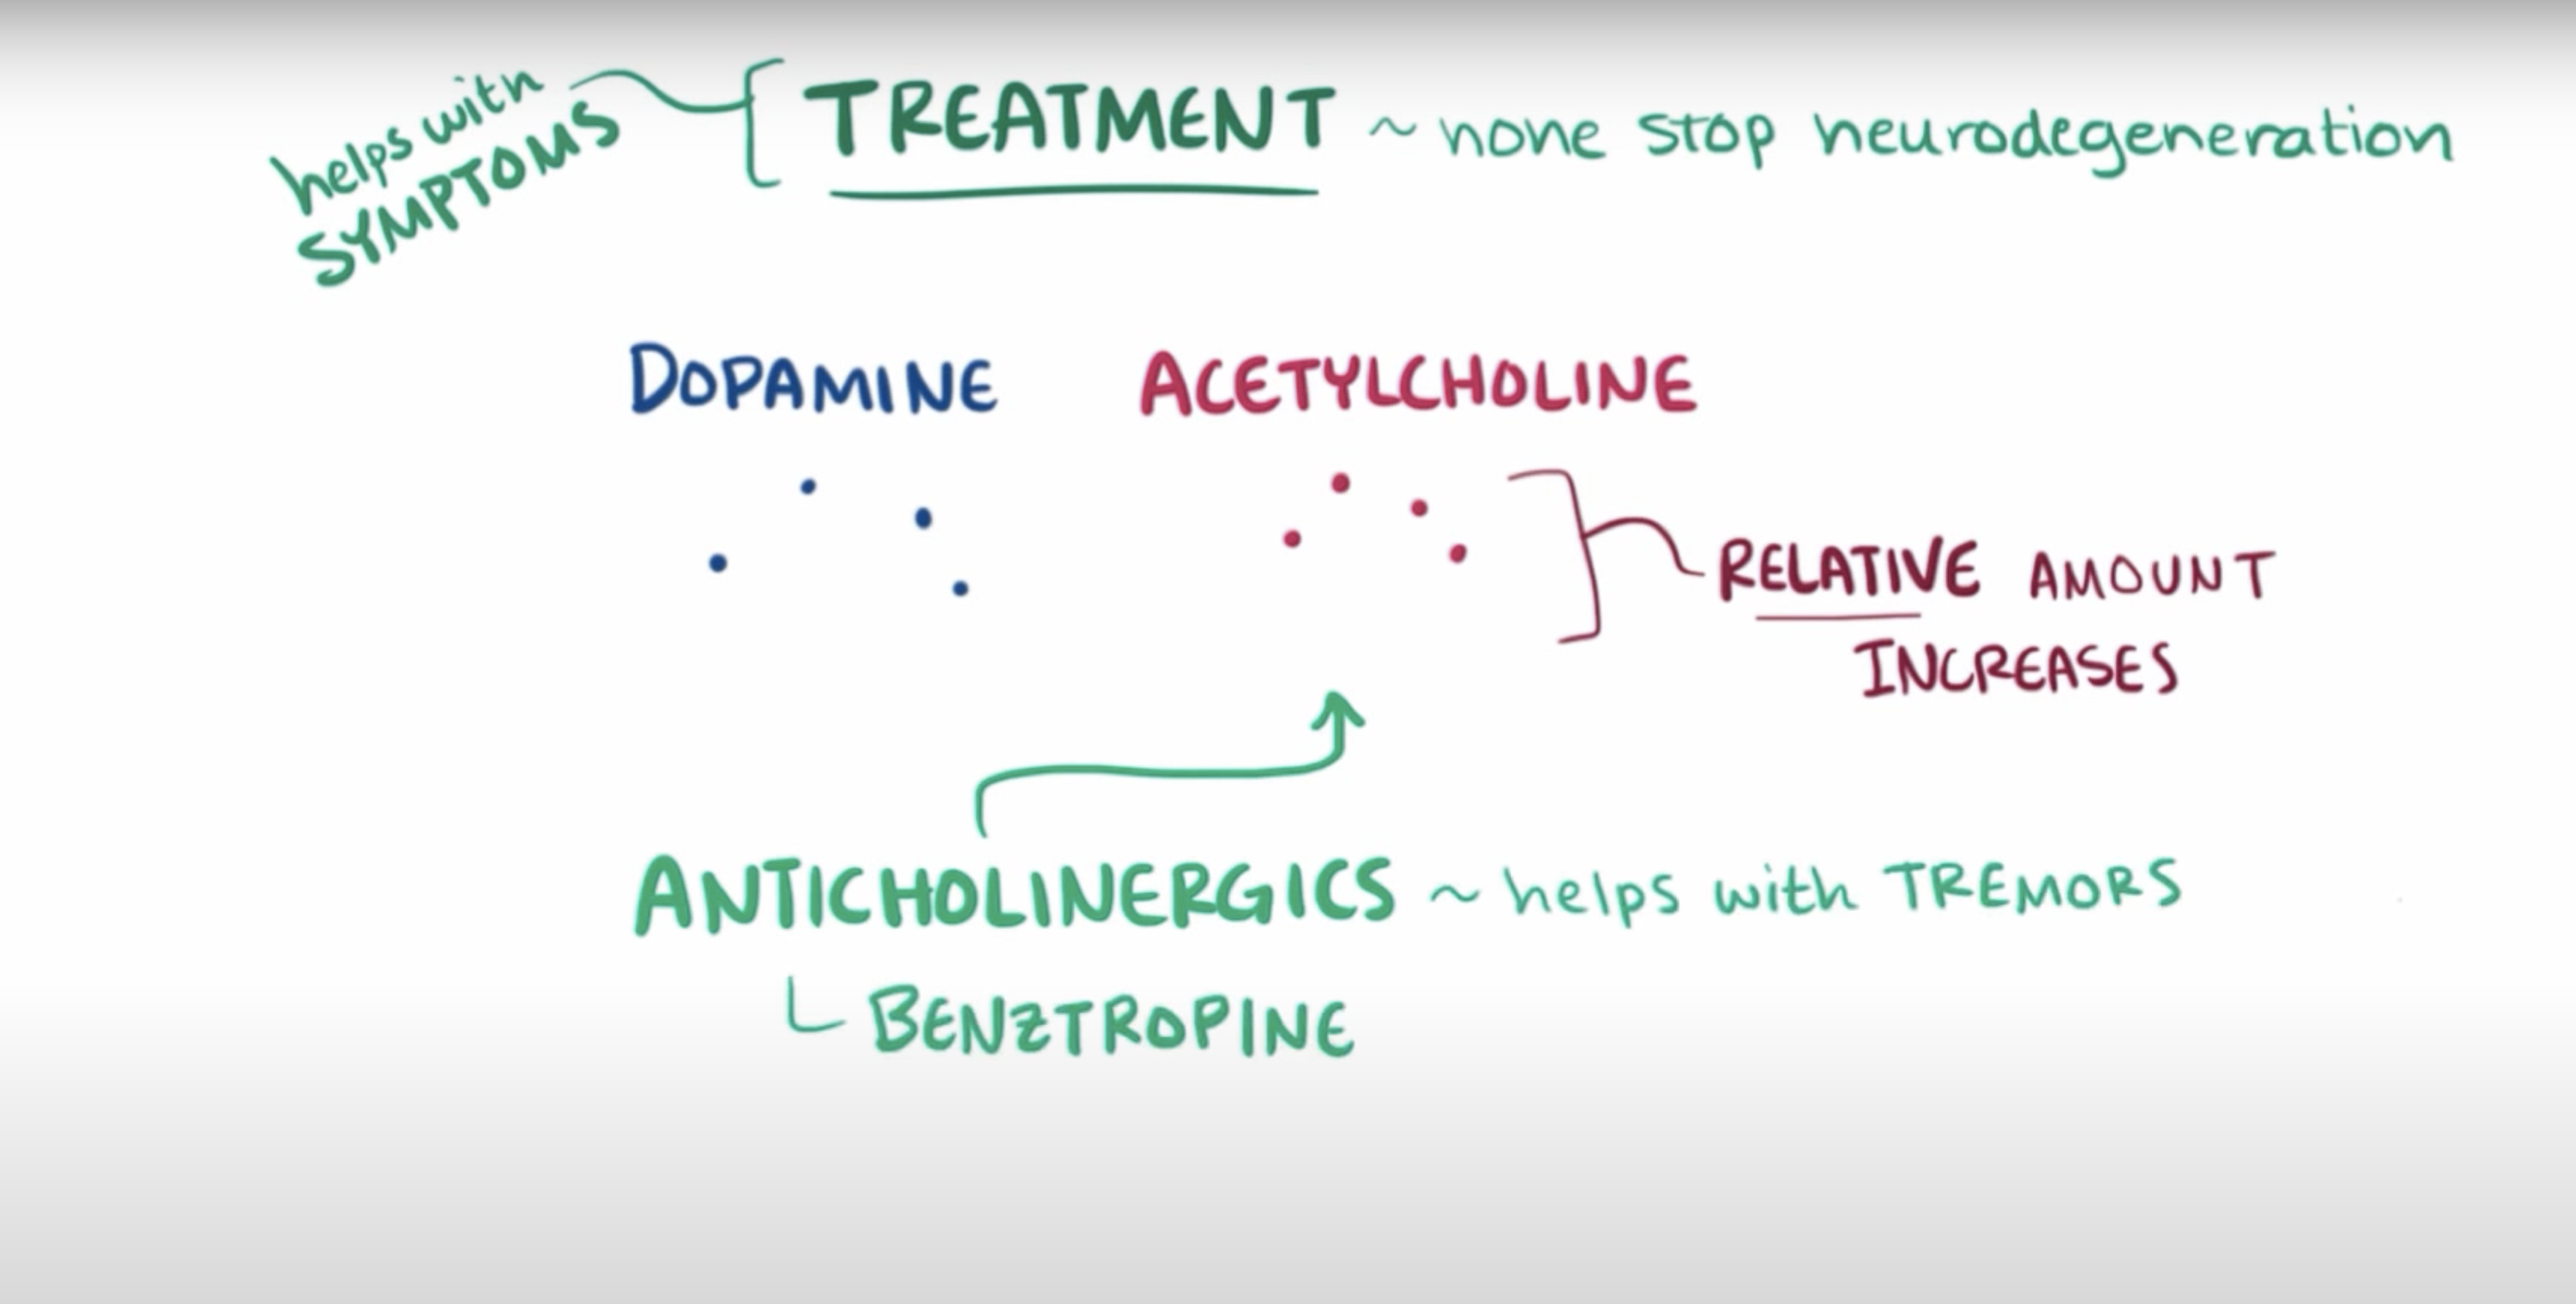 helps with
SYMPTOMS
TREATMENT ~ none stop neurodegeneration
DOPAMINE ACETYLCHOLINE
RELATIVE AMOUNT
INCREASES
ANTICHOLINERGICS ~ helps with TREMORS
BENZTROPINE